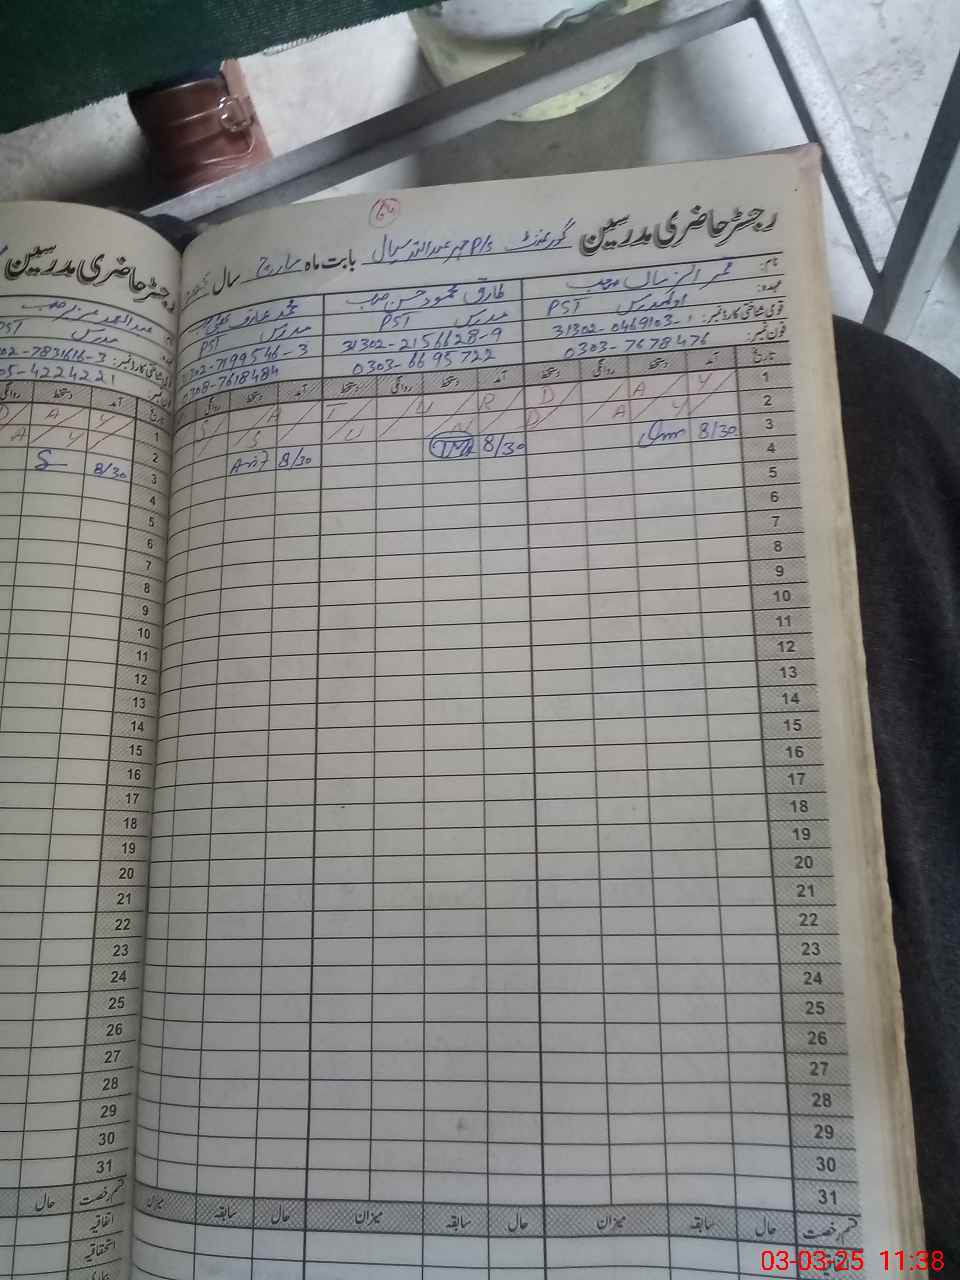 رجسٹر حاضری مدرسین گورنمنٹ P/S مہر عبداللہ سیال بابت ماہ مارچ سال
نام:
طارق محمود حسن صاحب
محمد عارف
عہدہ:
PST
مدرس PST
مدرس PST
قومی شناختی کارڈ نمبر: 31302-0469103-1
31302-2156628-9
302-7199546-3
فون نمبر: 0303-7678476
0303-6695722
0308-7618484
تاریخ آمد دستخط روانگی آمد دستخط روانگی آمد دستخط روانگی
1 S A T U R D A Y
2 S U N D A Y
3 8/30 8/30 TMH 8/30 Arif
4
5
6
7
8
9
10
11
12
13
14
15
16
17
18
19
20
21
22
23
24
25
26
27
28
29
30
31
قسم رخصت حال سابقہ میزان حال سابقہ میزان حال سابقہ میزان
اتفاقیہ
رجسٹر حاضری مدرسین
مدرس PST
302-7831616-3
05-4224221
تاریخ آمد دستخط
1 D A Y
2 A Y
3 8/30
4
5
6
7
8
9
10
11
12
13
14
15
16
17
18
19
20
21
22
23
24
25
26
27
28
29
30
31
قسم رخصت حال
اتفاقیہ
استحقاقیہ
بیماری
03-03-25 11:38